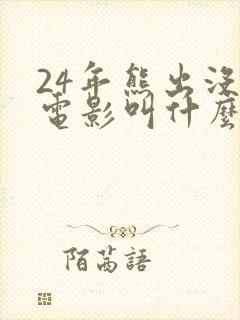 24年熊出沒
電影叫什麼
陌茜語